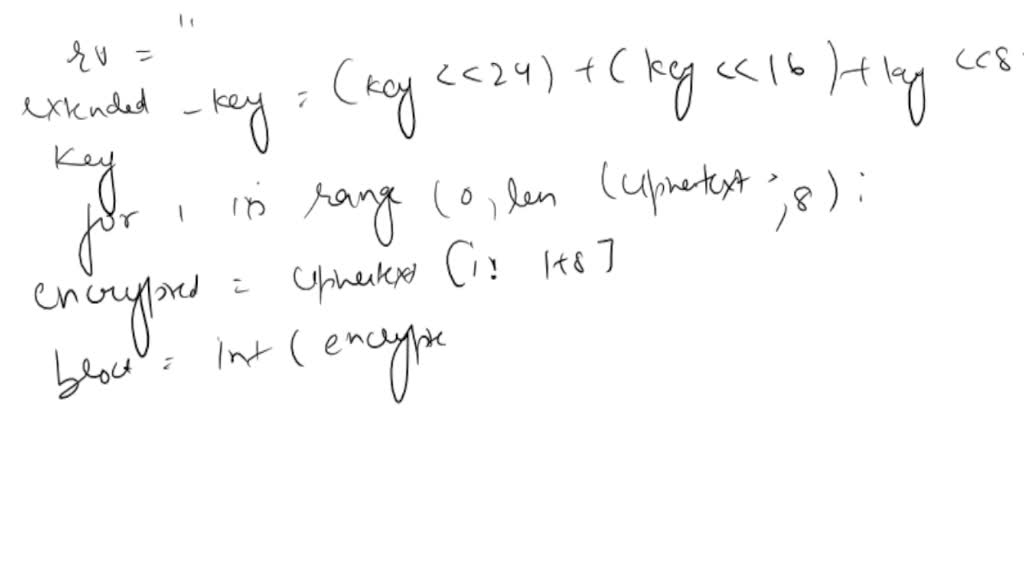 rv = ''
extended_key = (key <<24) + (key <<16) + key <<8
key
for i in range (0, len (ciphertext, 8):
encrypted = ciphertext [i: i+8]
block = int (encrypte